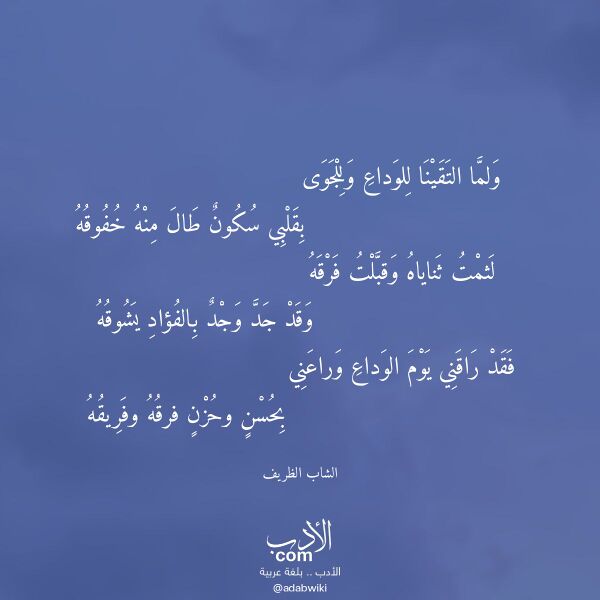 وَلمَّا التَقَيْنَا لِلوَداعِ وَلِلْجَوَى
بِقَلْبِي سُكُونٌ طَالَ مِنْهُ خُفُوقُهُ
لَثمْتُ ثَناياهُ وَقبَّلْتُ فَرْقَهُ
وَقَدْ جَدَّ وَجْدٌ بِالفُؤادِ يَشُوقُهُ
فَقَدْ رَاقَنِي يَوْمَ الوَداعِ وَراعَنِي
بِحُسْنٍ وحُزْنٍ فرقُهُ وفَرِيقُهُ
الشاب الظريف
الأدب
com
الأدب .. بلغة عربية
@adabwiki